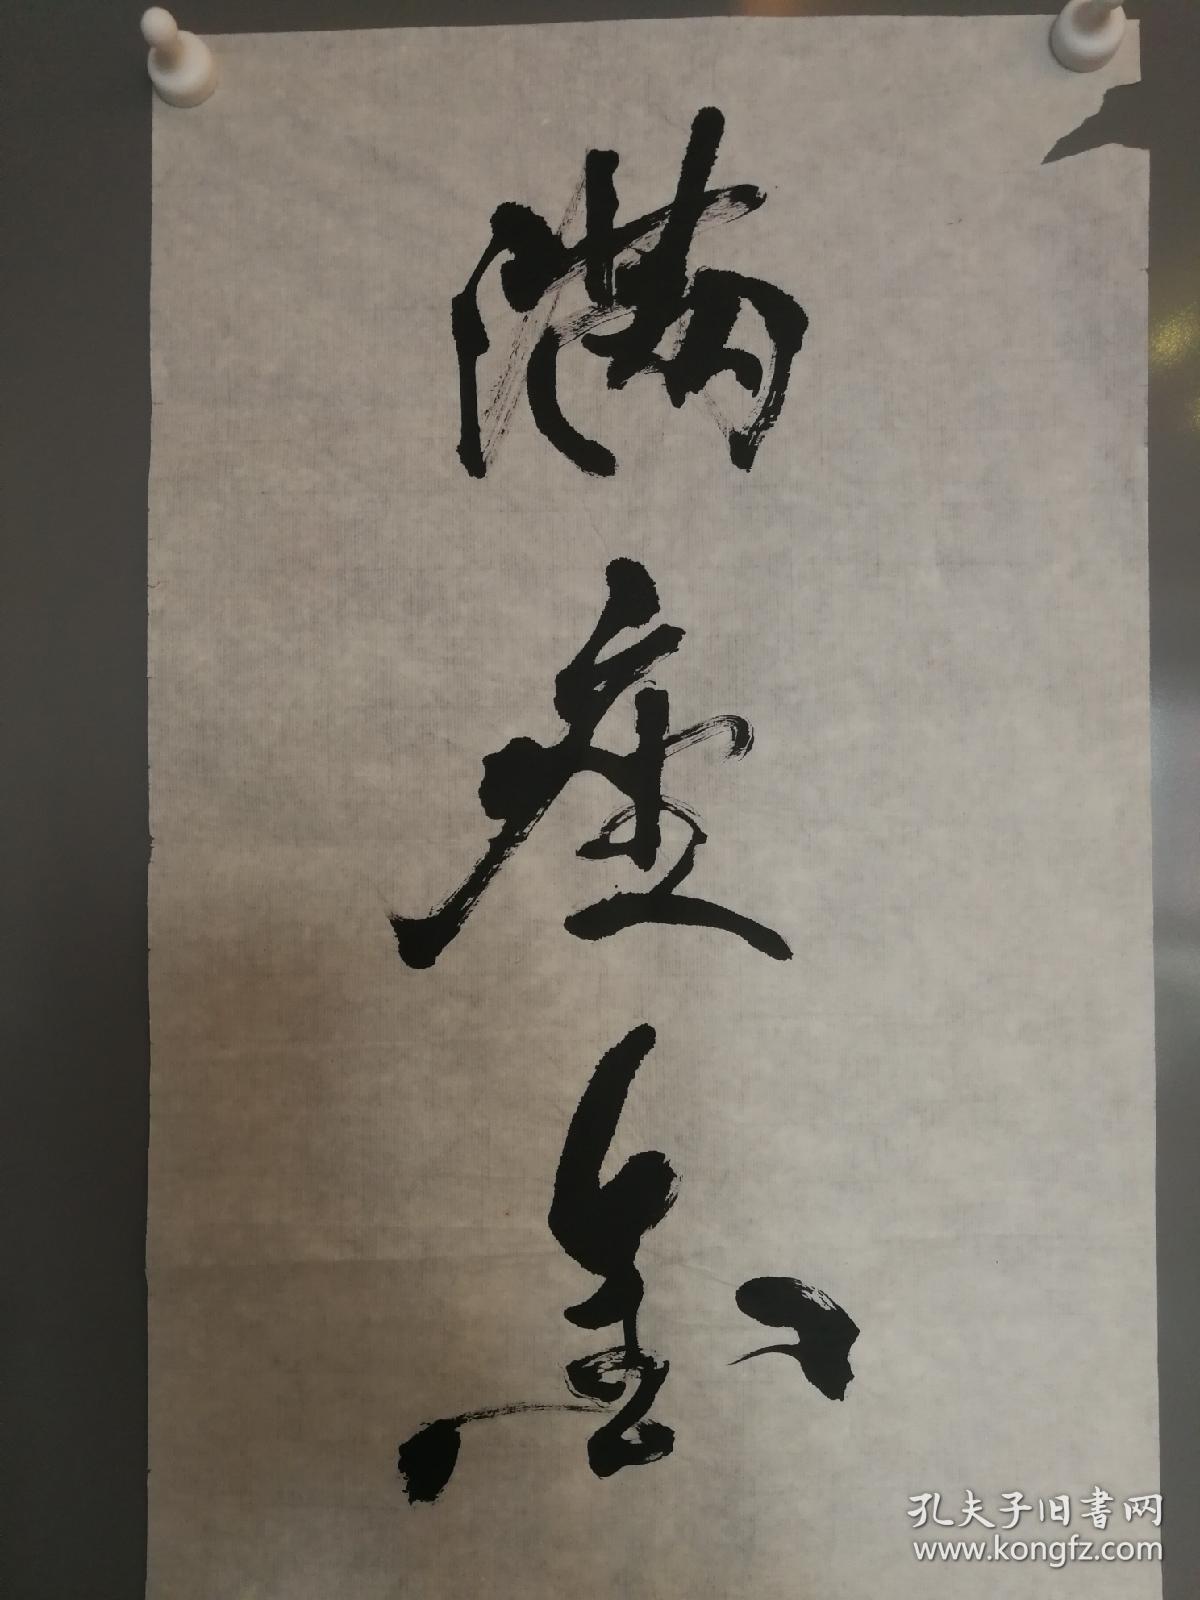 满
座
孔夫子旧書网
www.kongfz.com